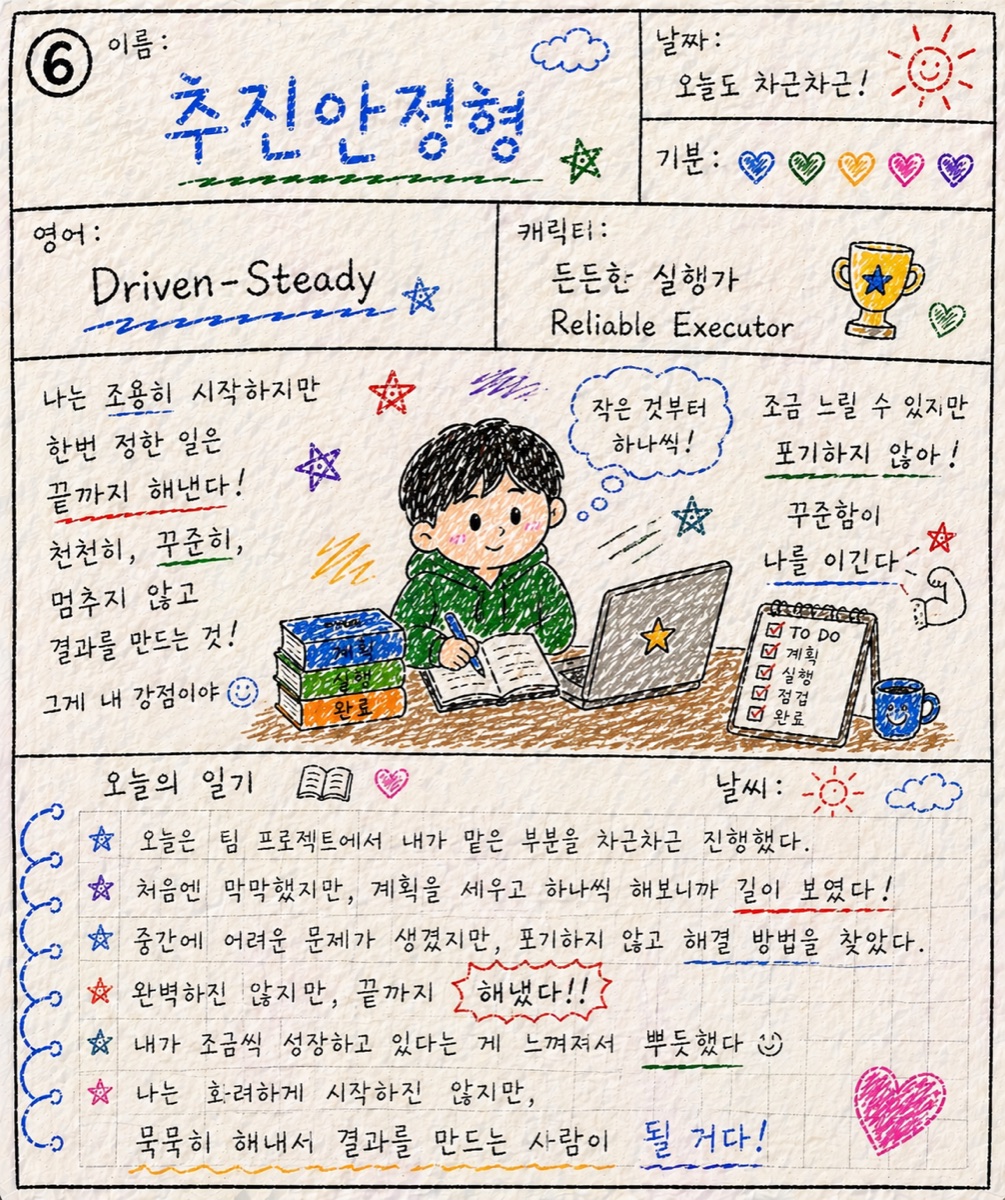 6
이름:
추진안정형
날짜:
오늘도 차근차근!
기분:
영어:
Driven-Steady
캐릭터:
든든한 실행가
Reliable Executor
나는 조용히 시작하지만
한번 정한 일은
끝까지 해낸다!
천천히, 꾸준히,
멈추지 않고
결과를 만드는 것!
그게 내 강점이야
작은 것부터
하나씩!
조금 느릴 수 있지만
포기하지 않아!
꾸준함이
나를 이긴다
계획
실행
완료
TO DO
계획
실행
점검
완료
오늘의 일기
날씨:
오늘은 팀 프로젝트에서 내가 맡은 부분을 차근차근 진행했다.
처음엔 막막했지만, 계획을 세우고 하나씩 해보니까 길이 보였다!
중간에 어려운 문제가 생겼지만, 포기하지 않고 해결 방법을 찾았다.
완벽하진 않지만, 끝까지 해냈다!!
내가 조금씩 성장하고 있다는 게 느껴져서 뿌듯했다
나는 화려하게 시작하진 않지만,
묵묵히 해내서 결과를 만드는 사람이 될 거다!